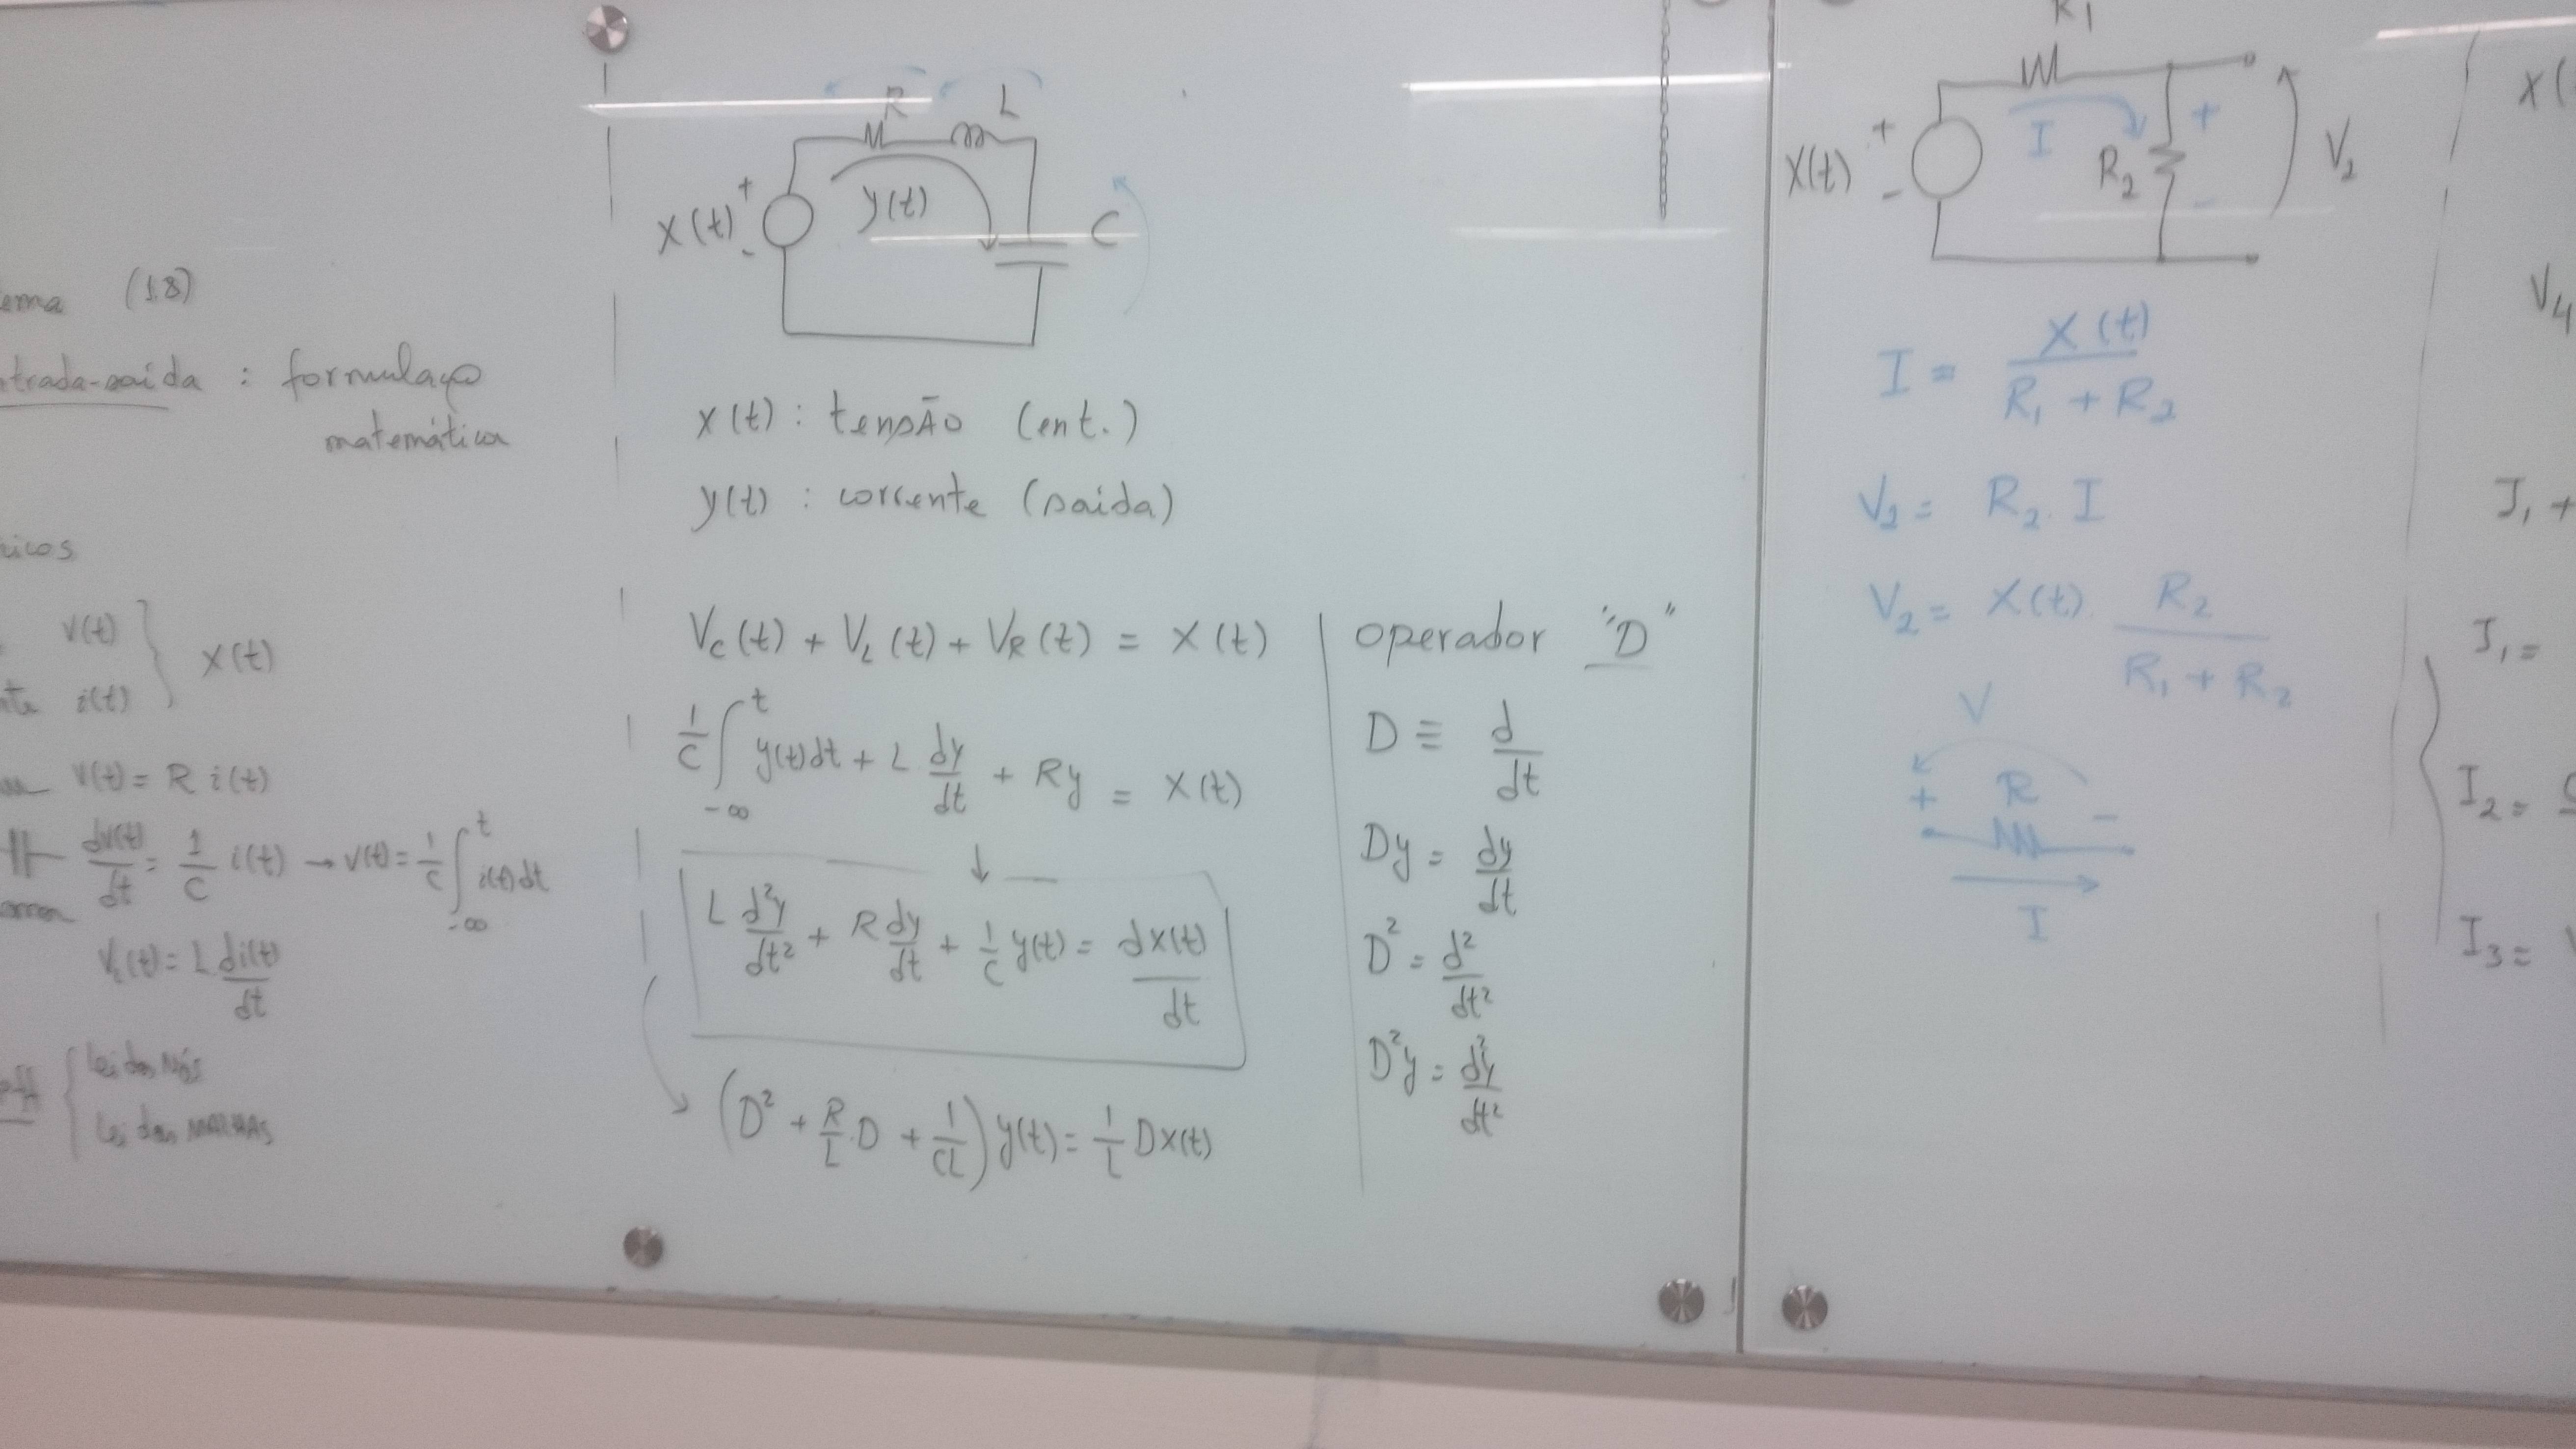 (1.8)
: formulação
matemática
v(t)
i(t)
x(t)
v(t) = R i(t)
dv(t)/dt = 1/C i(t) → v(t) = 1/C ∫_{-∞}^{t} i(t)dt
V_L(t) = L di(t)/dt
Lei dos Nós
Lei das MALHAS
R L
x(t) + -
y(t)
C
x(t) : tensÃo (ent.)
y(t) : corrente (saida)
V_C(t) + V_L(t) + V_R(t) = x(t)
1/C ∫_{-∞}^{t} y(t)dt + L dy/dt + Ry = x(t)
↓
L d²y/dt² + R dy/dt + 1/C y(t) = dx(t)/dt
(D² + R/L .D + 1/CL) y(t) = 1/L Dx(t)
operador "D"
D ≡ d/dt
Dy = dy/dt
D² = d²/dt²
D²y = d²y/dt²
R1
x(t) + -
I
R2 + -
V2
I = x(t)/(R1 + R2)
V2 = R2 . I
V2 = x(t) . R2/(R1 + R2)
V
+ R -
I
x(
V4
I1 +
I1 =
I2 =
I3 =